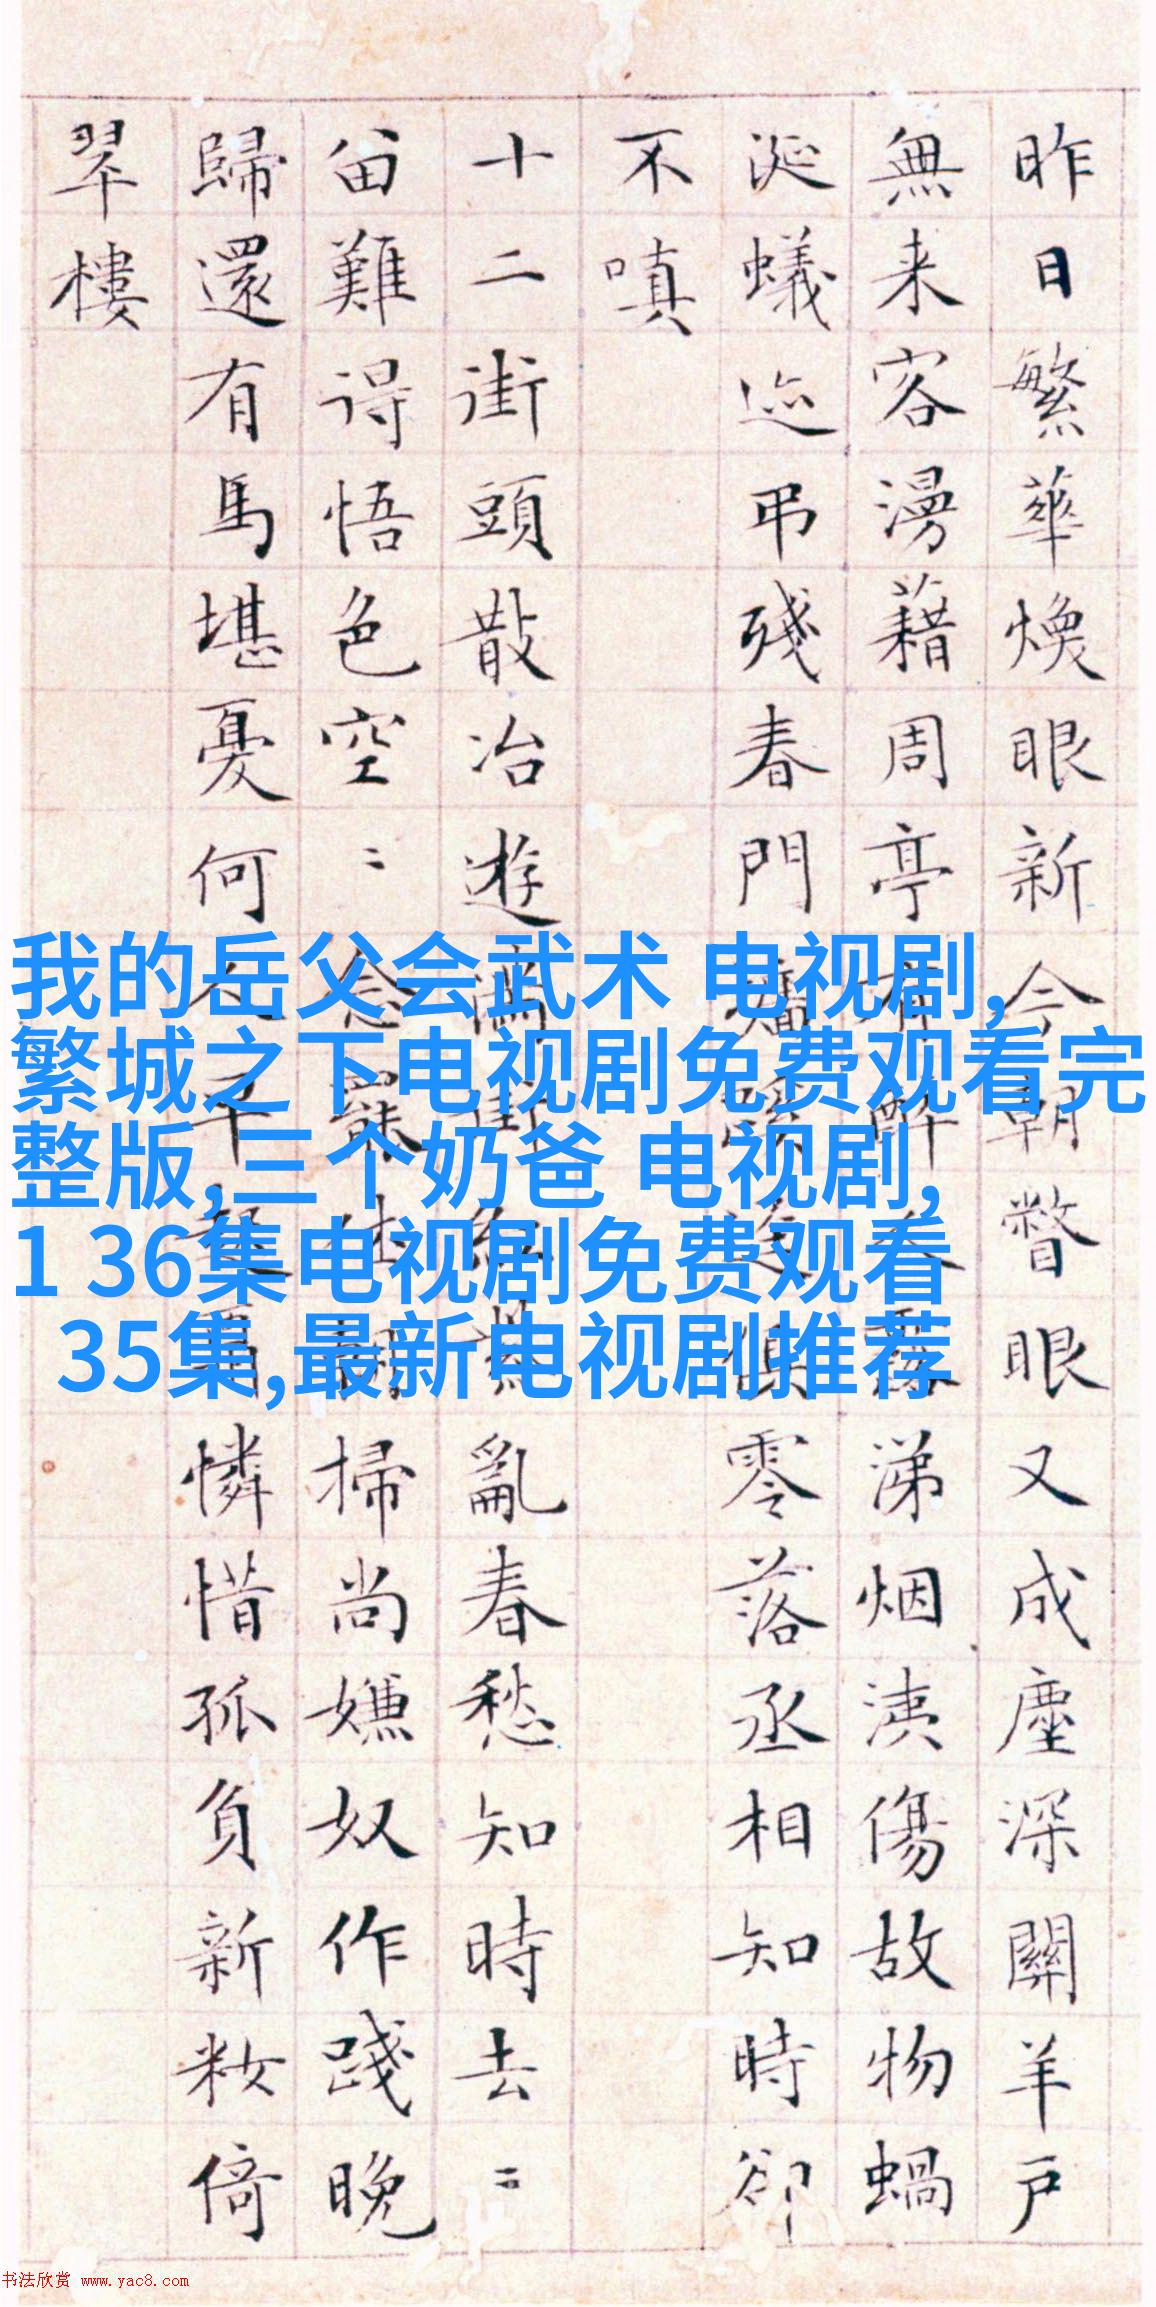 昨日繁華煥眼新今朝瞥眼又成塵深關羊戶
無来客漫藉周亭有醉人露涕烟洟傷故物蝸
涎蟻迹弔残春門墻蹊逕俱零落丞相知時卻
不嗔
十二街頭散冶遊滿街紅紫亂春愁知時去〻
留難得悟色空〻念罷休朝掃尚嫌奴作踐晚
歸還有馬堪憂何人早起酬憐惜孤負新籹倚
翠樓
我的岳父会武术 电视剧,
繁城之下电视剧免费观看完
整版,三个奶爸 电视剧,
1 36集电视剧免费观看
35集,最新电视剧推荐
书法欣赏 www.yac8.com